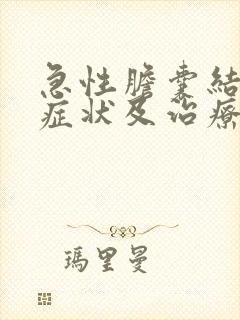 急性膽囊結
症狀及治療
瑪里曼